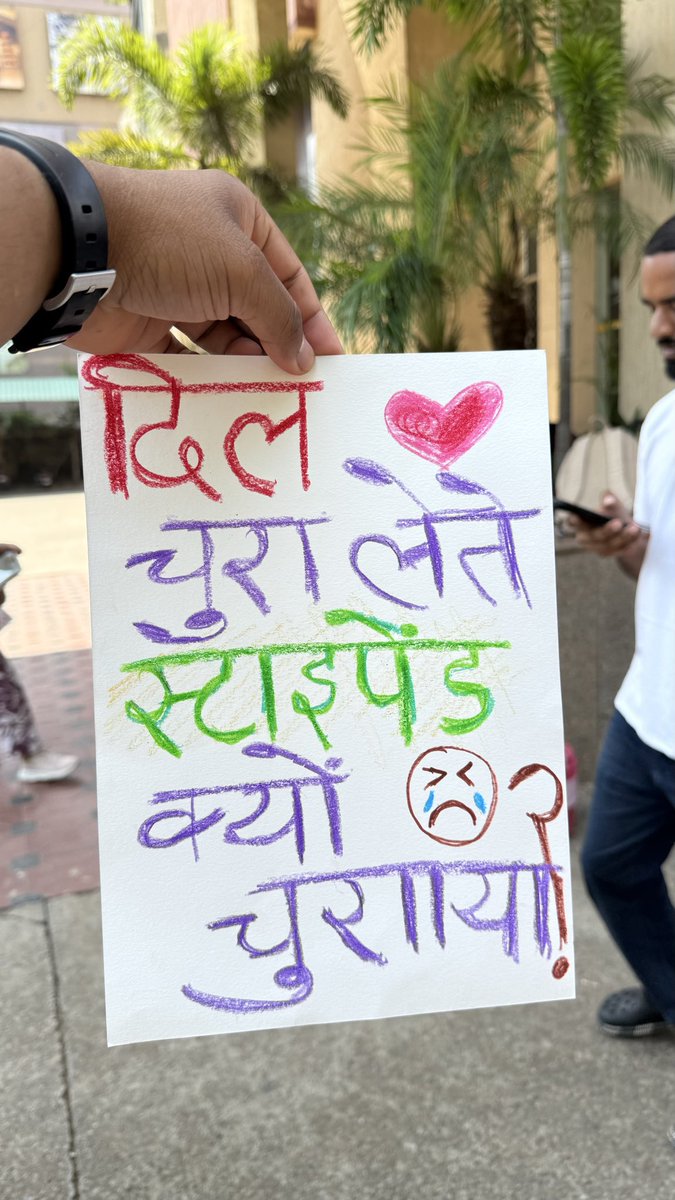 दिल
चुरा लेते
स्टाइपेंड
क्यों ?
चुरााया!